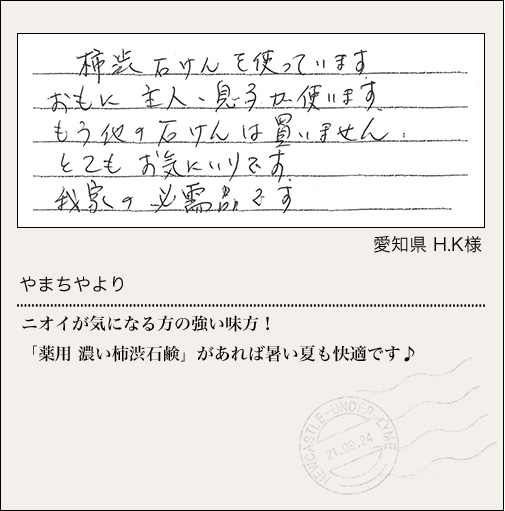 柿渋石けんを使っています
おもに主人、息子が使います
もう他の石けんは買いません.
とてもお気にいりです
我家の必需品です
愛知県 H.K様
やまちやより
ニオイが気になる方の強い味方！
「薬用 濃い柿渋石鹸」があれば暑い夏も快適です♪
NEWCASTLE-UNDER-LYME
21.09.24